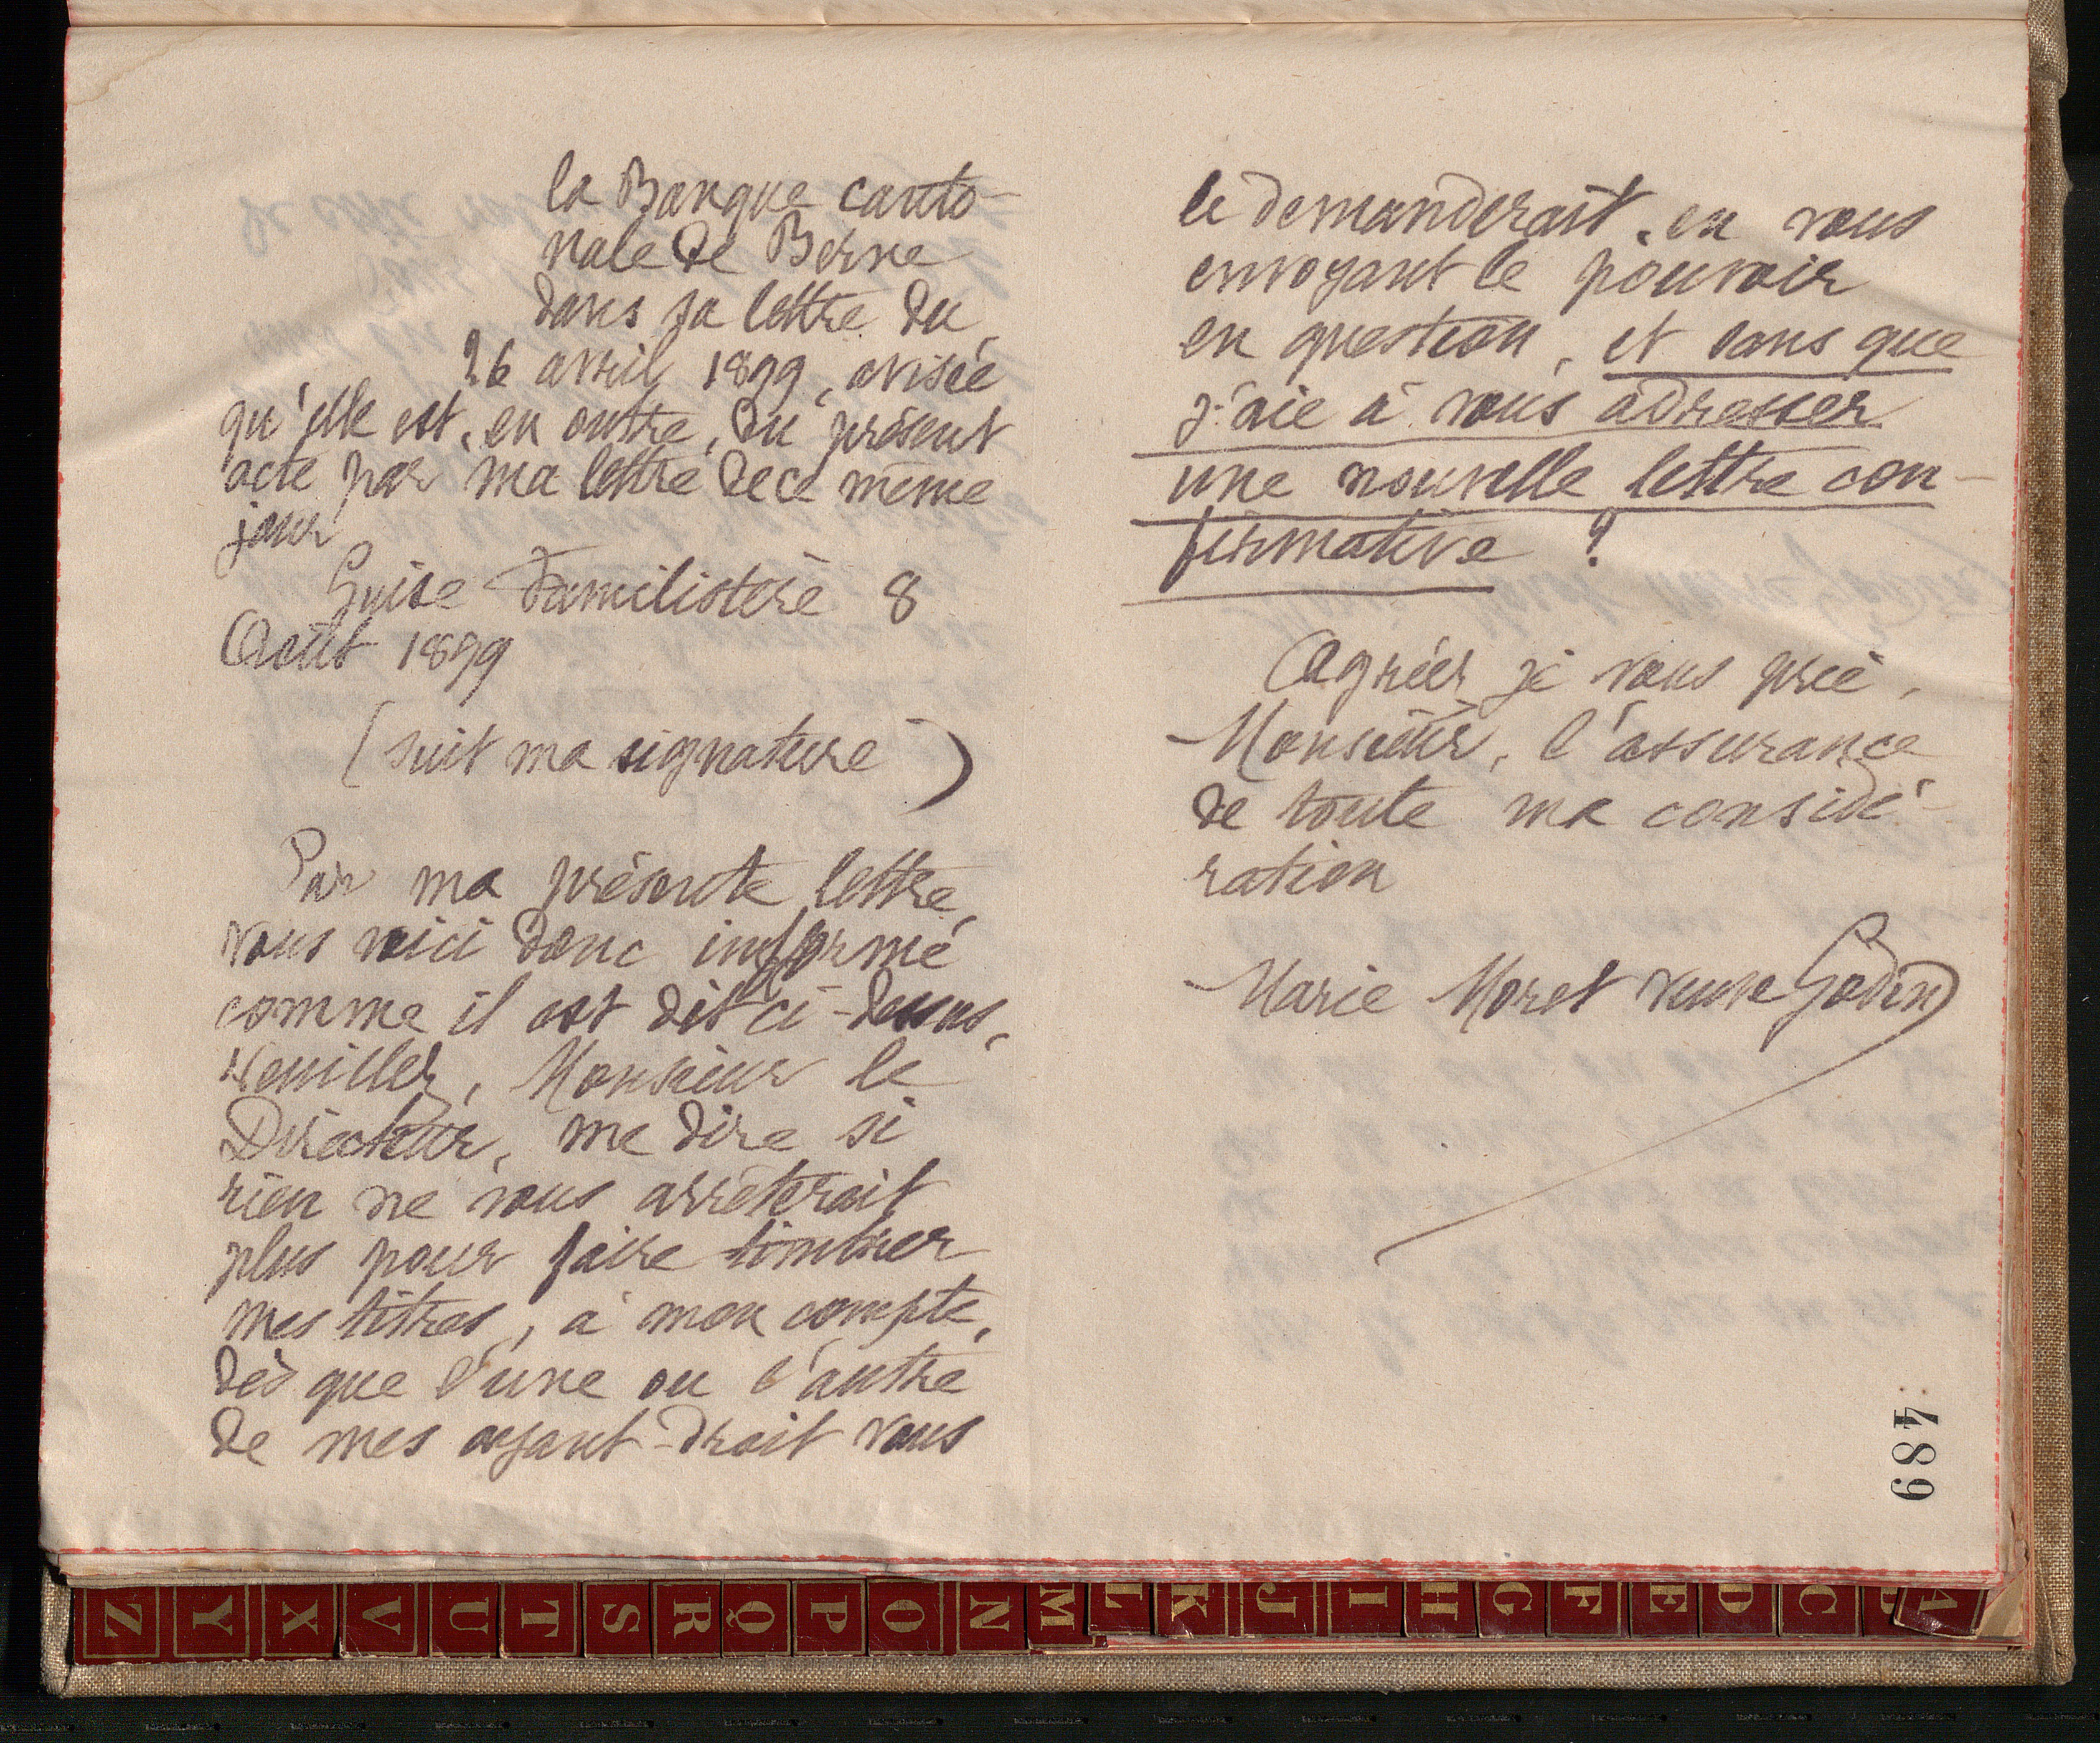 la Banque canto-
nale de Berne
dans sa lettre du
26 avril 1899, avisée
qu'elle est, en outre, du présent
acte par ma lettre de ce même
jour
Guise Familistère 8
Août 1899
(suit ma signature)
Par ma présente lettre,
vous voici donc informé
comme il est dit ci-dessus,
Veuillez, Monsieur le
Directeur, me dire si
rien ne vous arrêterait
plus pour faire timbrer
mes titres, à mon compte,
dès que l'une ou l'autre
de mes ayant-droit vous
le demanderait, en vous
envoyant le pouvoir
en question, et sans que
j'aie à vous adresser
une nouvelle lettre con-
firmative ?
Agréez je vous prie,
Monsieur, l'assurance
de toute ma considé-
ration
Marie Moret veuve Godin
489
Z Y X V U T S R Q P O N M L K J I H G F E D C B A